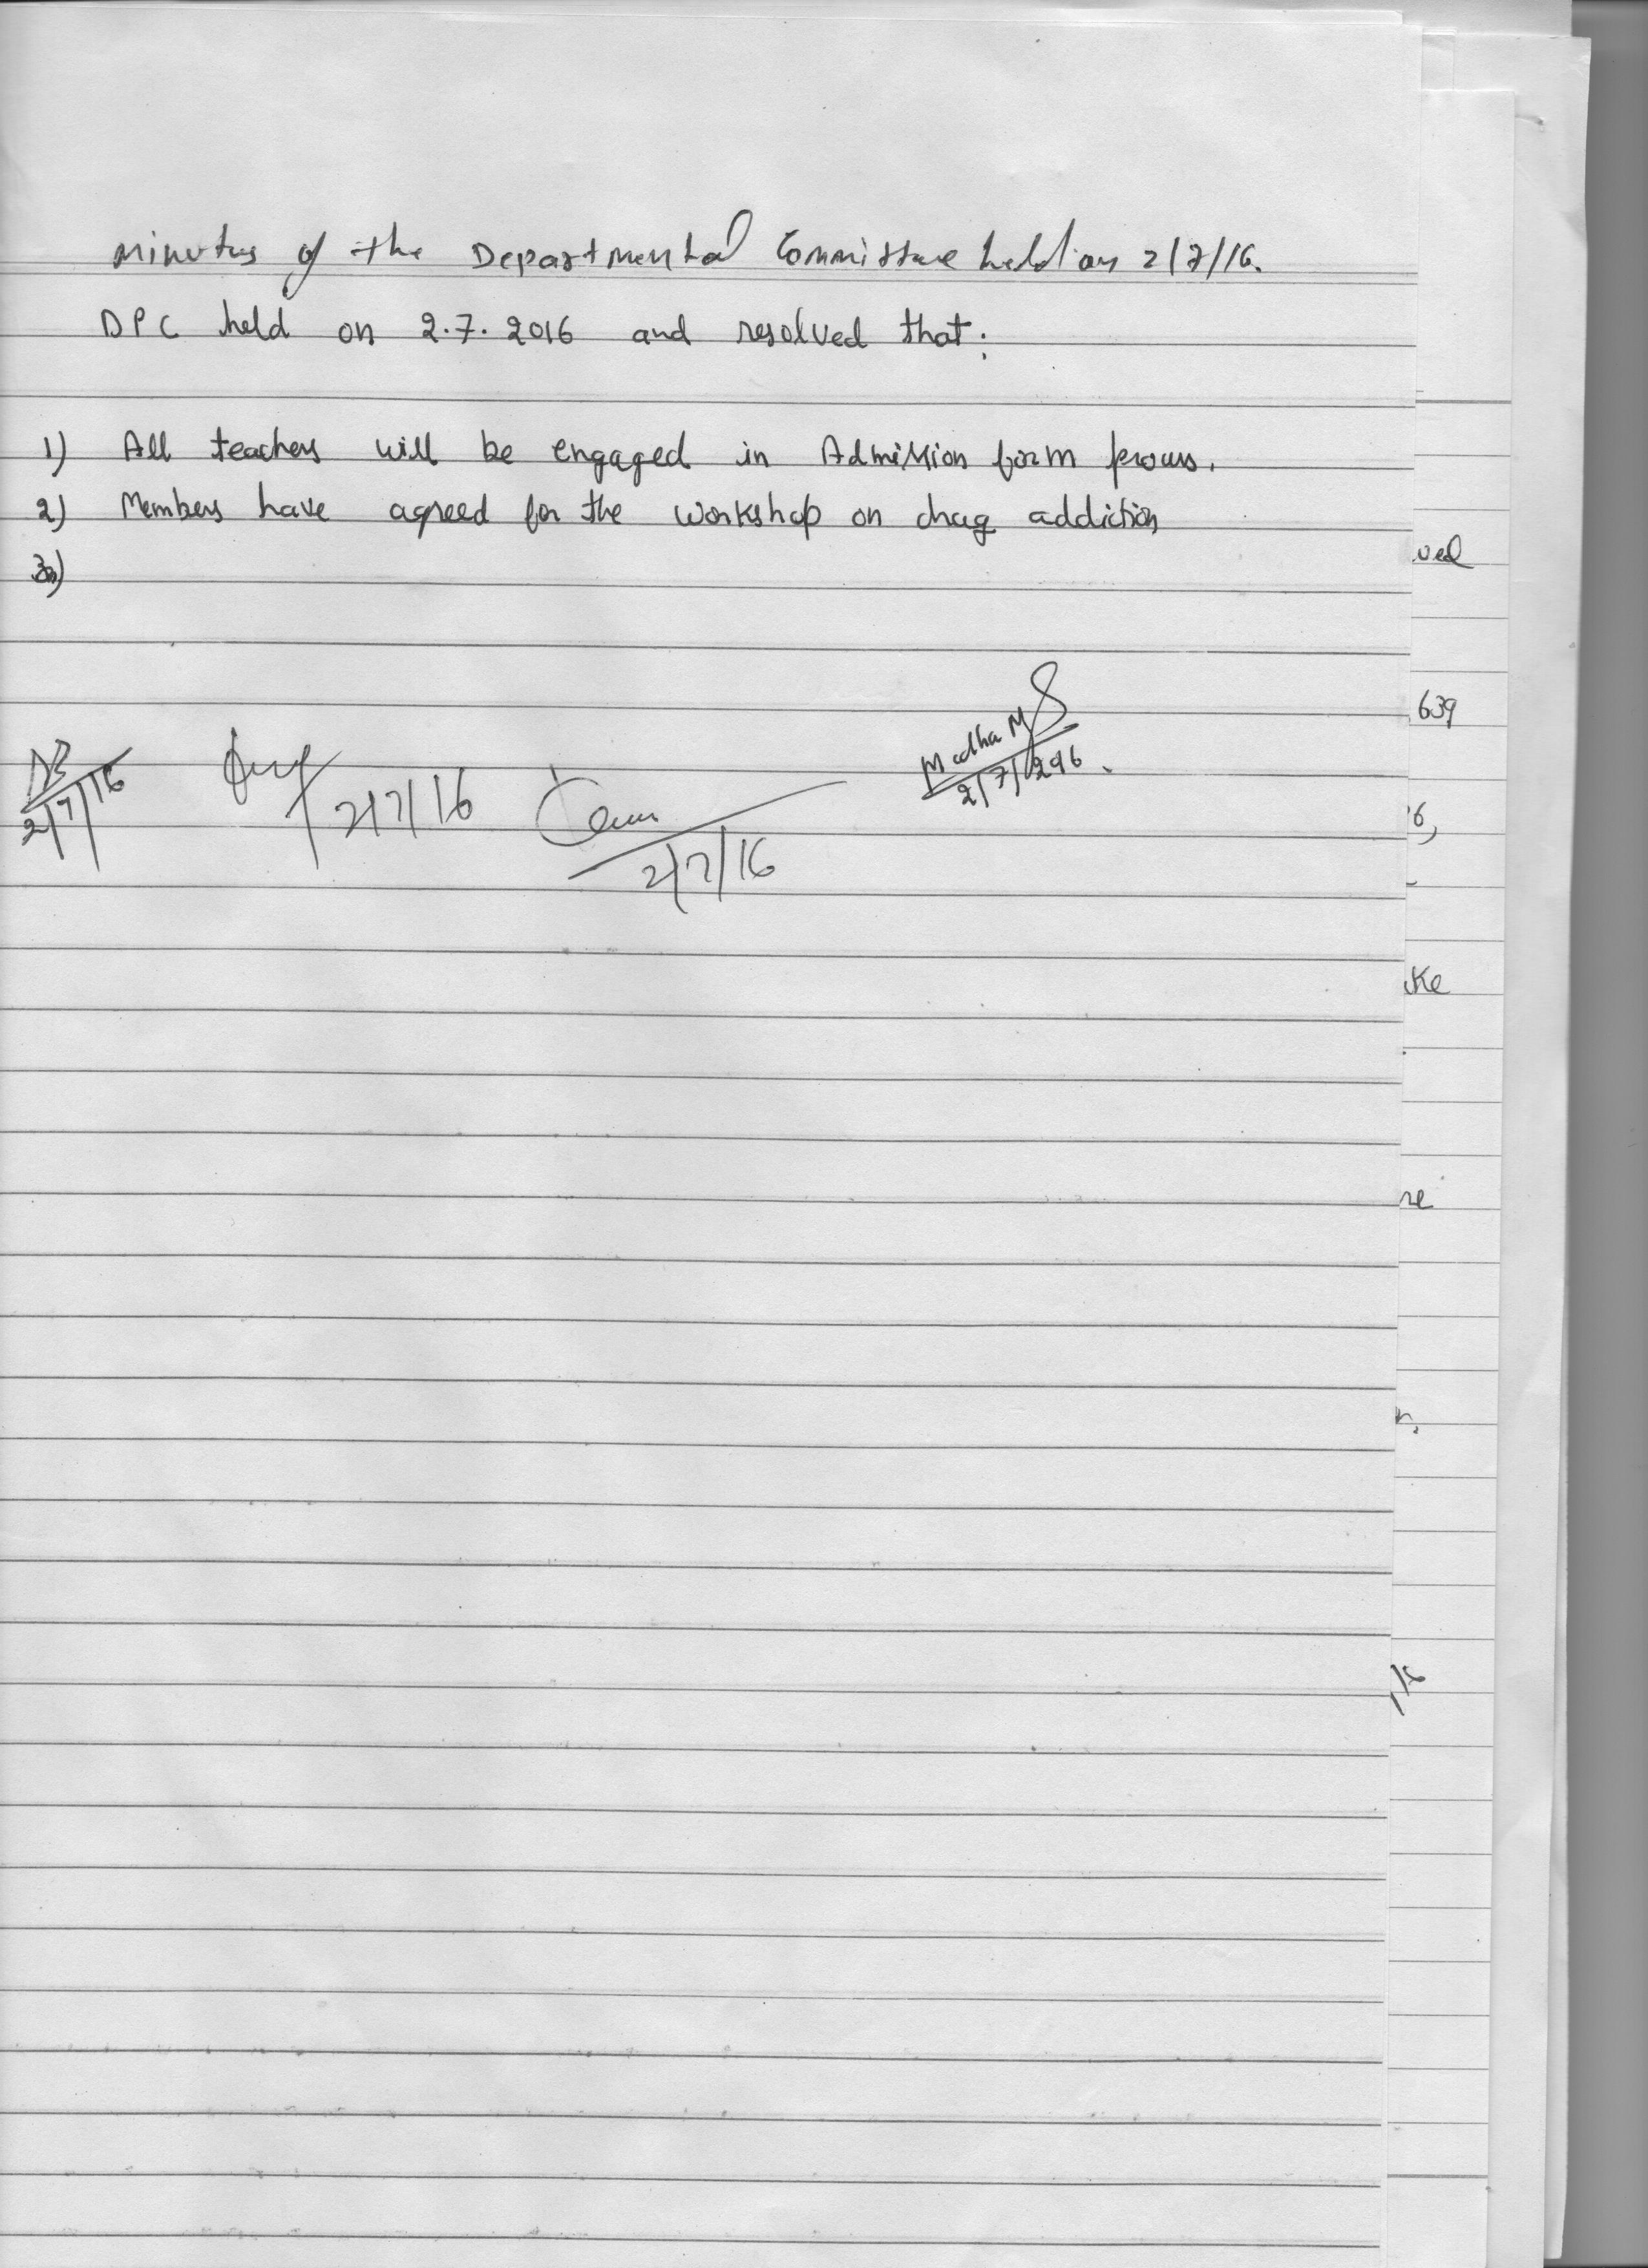 Minutes of the Departmental Committee held on 2/7/16.
DPC held on 2.7.2016 and resolved that:
1) All teachers will be engaged in Admission form process.
2) Members have agreed for the workshop on drug addiction
3)
2/7/16
2/7/16
2/7/16
Madha M
2/7/2016.
ved
639
16,
ke
re